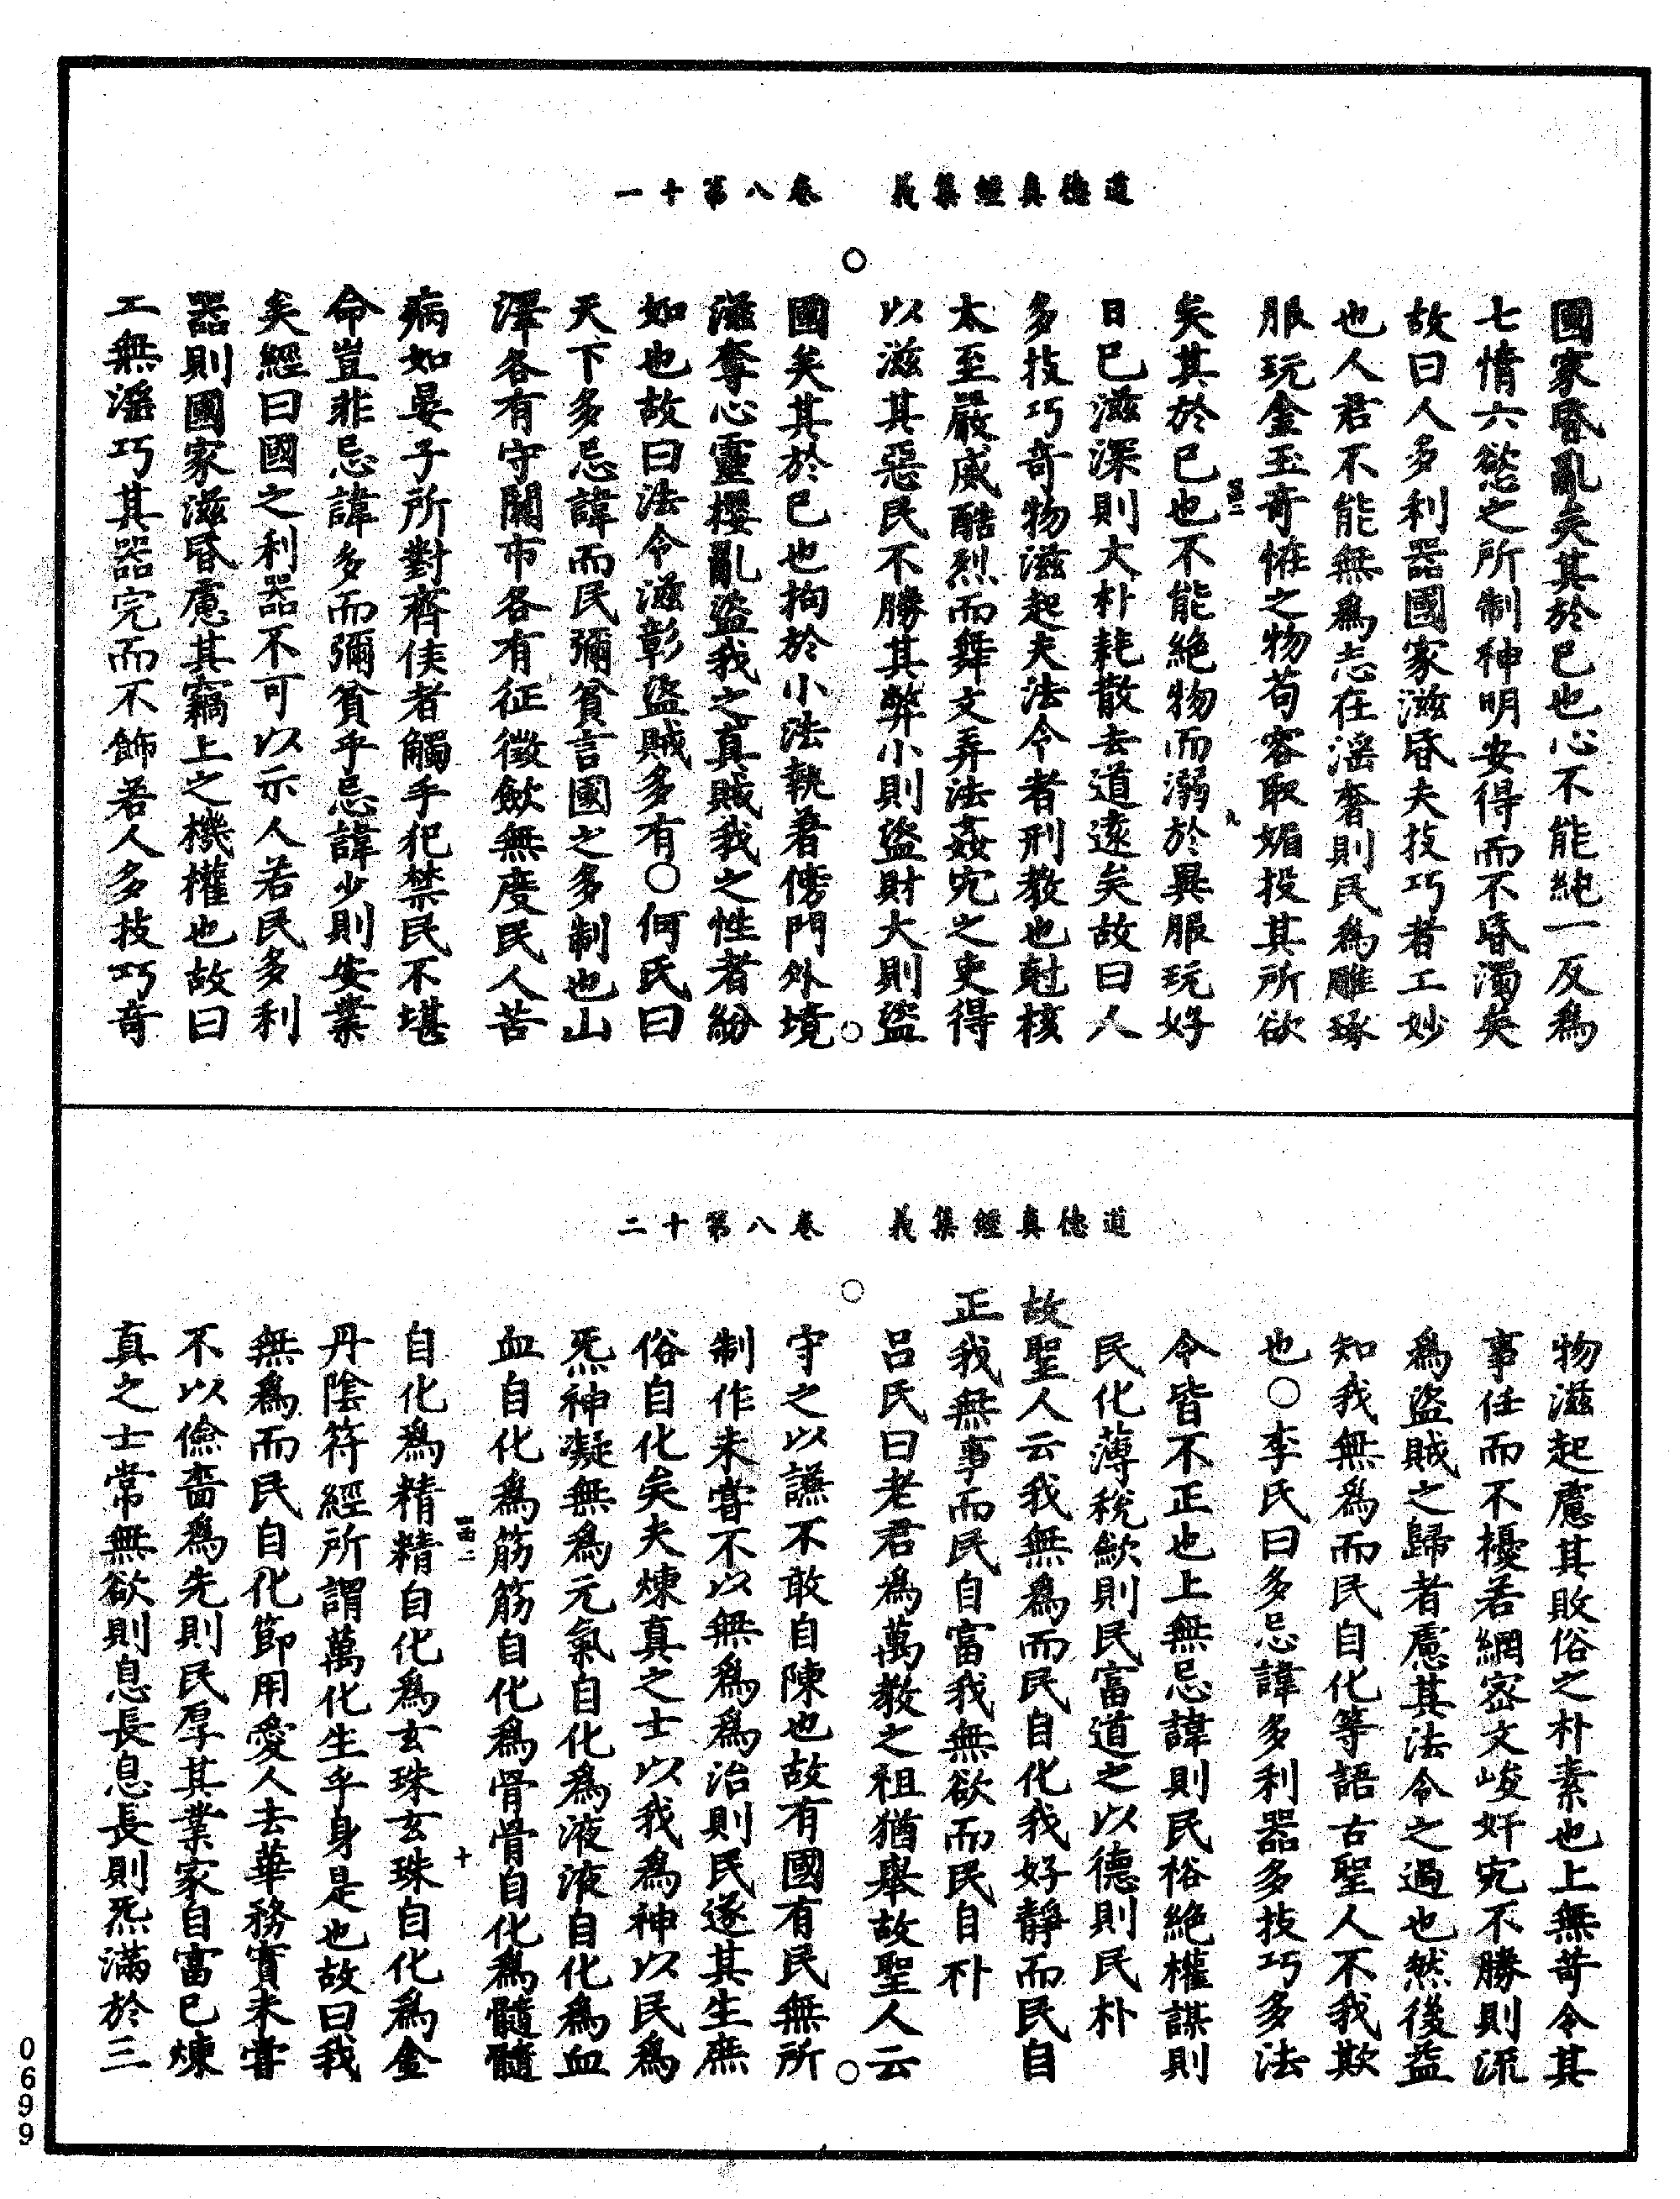 道德真經集義　卷八第十一
國家昏亂矣其於已也心不能純一反爲
七情六慾之所制神明安得而不昏濁矣
故曰人多利器國家滋昏夫技巧者工妙
也人君不能無爲志在滛奢則民爲雕琢
服玩金玉奇恠之物苟容取媚投其所欲
矣其於已也不能絶物而溺於異服玩好
日已滋深則大朴耗散去道遠矣故曰人
多技巧奇物滋起夫法令者刑教也尅核
太至嚴威酷烈而舞文弄法姦宄之吏得
以滋其惡民不勝其弊小則盜財大則盜
國矣其於已也拘於小法執着傍門外境
滋奪心靈攖亂盜我之真賊我之性者紛
如也故曰法令滋彰盜賊多有○何氏曰
天下多忌諱而民彌貧言國之多制也山
澤各有守關市各有征徵歛無度民人苦
病如晏子所對齊侯者觸手犯禁民不堪
命豈非忌諱多而彌貧乎忌諱少則安業
矣經曰國之利器不可以示人若民多利
器則國家滋昏慮其竊上之機權也故曰
工無滛巧其器完而不飾若人多技巧奇
道德真經集義　卷八第十二
物滋起慮其敗俗之朴素也上無苛令其
事任而不擾若網密文峻奸宄不勝則流
爲盜賊之歸者慮其法令之過也然後益
知我無爲而民自化等語古聖人不我欺
也○李氏曰多忌諱多利器多技巧多法
令皆不正也上無忌諱則民裕絶權謀則
民化薄稅歛則民富道之以德則民朴
故聖人云我無爲而民自化我好靜而民自
正我無事而民自富我無欲而民自朴
呂氏曰老君爲萬教之祖猶舉故聖人云
守之以謙不敢自陳也故有國有民無所
制作未嘗不以無爲爲治則民遂其生庶
俗自化矣夫煉真之士以我爲神以民爲
炁神凝無爲元氣自化爲液液自化爲血
血自化爲筋筋自化爲骨骨自化爲髓髓
自化爲精精自化爲玄珠玄珠自化爲金
丹陰符經所謂萬化生乎身是也故曰我
無爲而民自化節用愛人去華務實未嘗
不以儉嗇爲先則民厚其業家自富已煉
真之士常無欲則息長息長則炁滿於三
0699